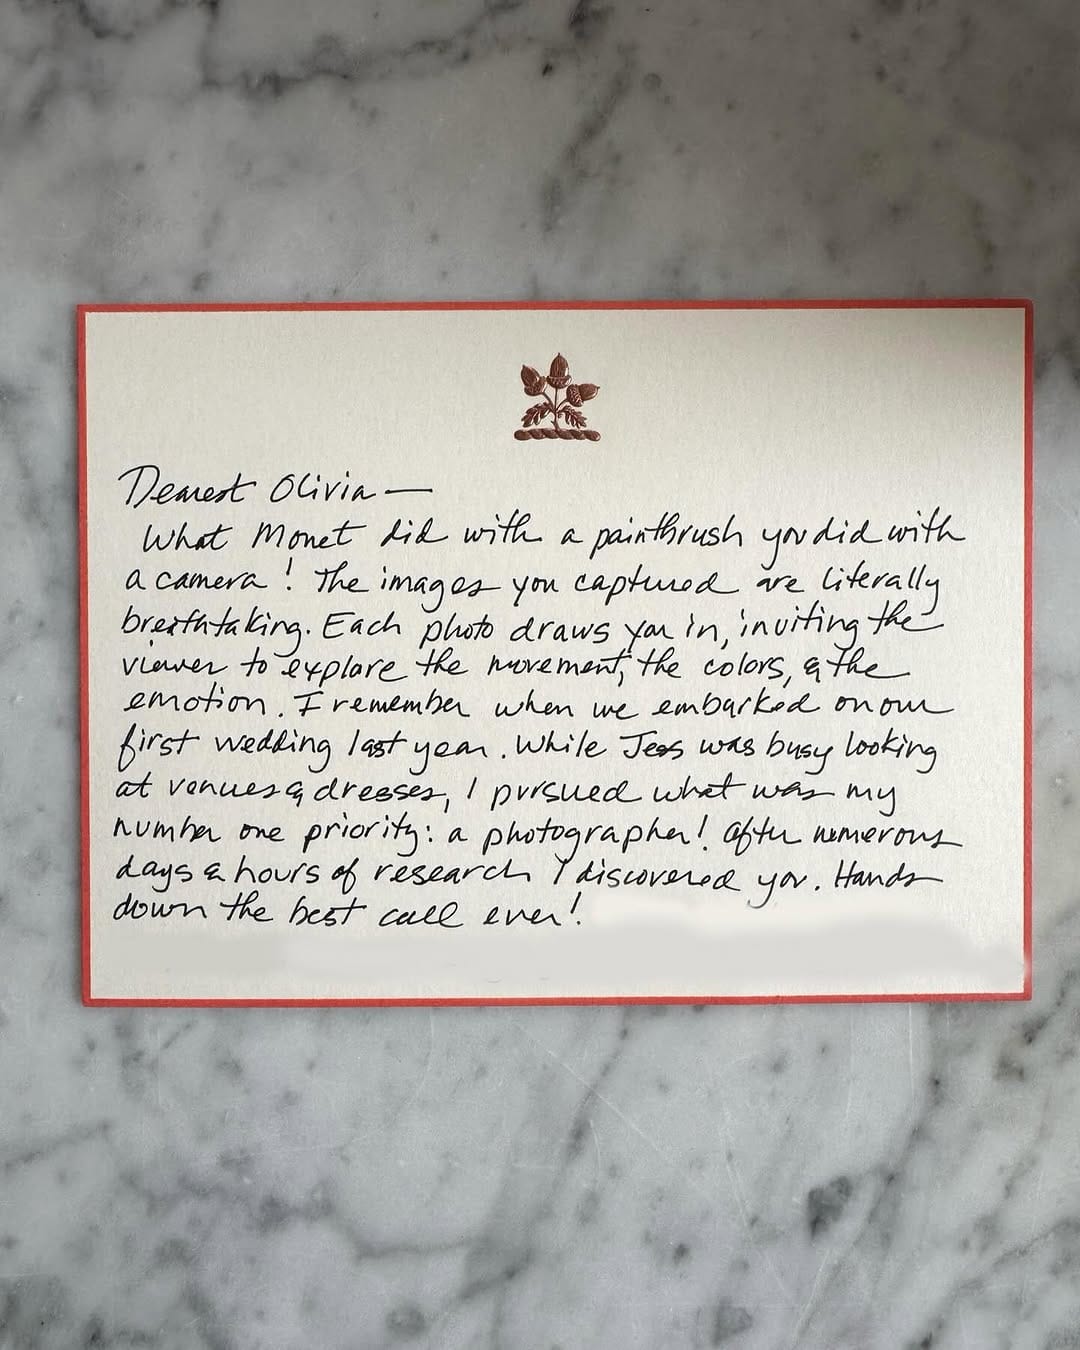 Dearest Olivia —
What Monet did with a paintbrush you did with
a camera! The images you captured are literally
breathtaking. Each photo draws you in, inviting the
viewer to explore the movement, the colors, & the
emotion. I remember when we embarked on our
first wedding last year. While Jess was busy looking
at venues & dresses, I pursued what was my
number one priority: a photographer! After numerous
days & hours of research I discovered you. Hands
down the best call ever!